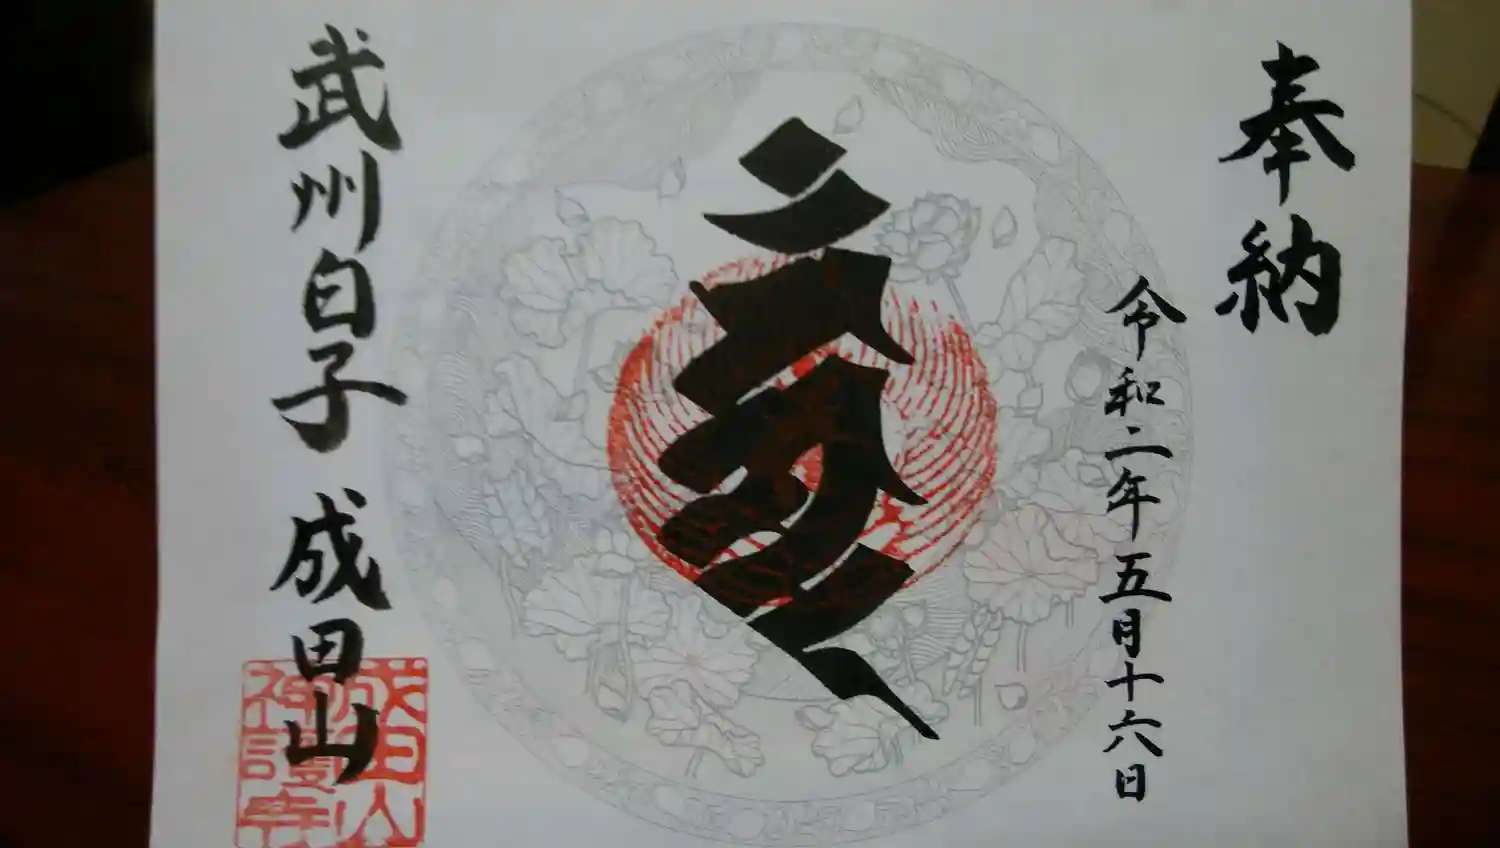 奉納
令和二年五月十六日
武州白子 成田山
成田山
神護寺